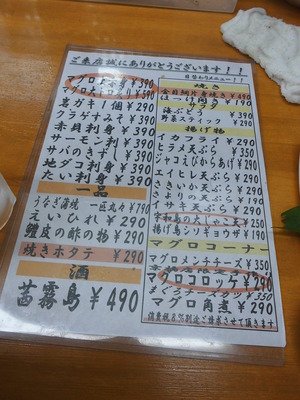 ご来店誠にありがとうございます！！
日替わりメニュー！！
マグロ
¥390
マグロ大
¥390
岩ガキ1個 ¥290
クラゲすみそ ¥390
赤貝刺身 ¥390
サーモン刺 ¥390
サバのきずし ¥390
地ダコ刺身 ¥390
たい刺身 ¥390
一品
うなぎ蒲焼 一匹丸々 ¥790
えいひれ ¥290
鱧皮の酢の物 ¥290
焼きホタテ ¥290
酒
茜霧島 ¥490
焼き
金目鯛片身焼き ¥490
ほっけ開き ¥490
サラダ
海ぶどう ¥390
野菜スティック ¥290
揚げ物
イカフライ ¥290
ヒラメ天ぷら ¥290
ジャコえびからあげ ¥290
エイヒレ天ぷら ¥290
さきいか天ぷら ¥290
きすの天ぷら ¥290
イサキ天ぷら ¥290
宇和島の大じゃこ天 ¥250
揚げ鳥シリギョウザ ¥190
マグロコーナー
マグロメンチチーズ ¥350
マグロコロッケ ¥250
¥350
マグロ角煮 ¥290
消費税8%別途ご請求させて頂きます